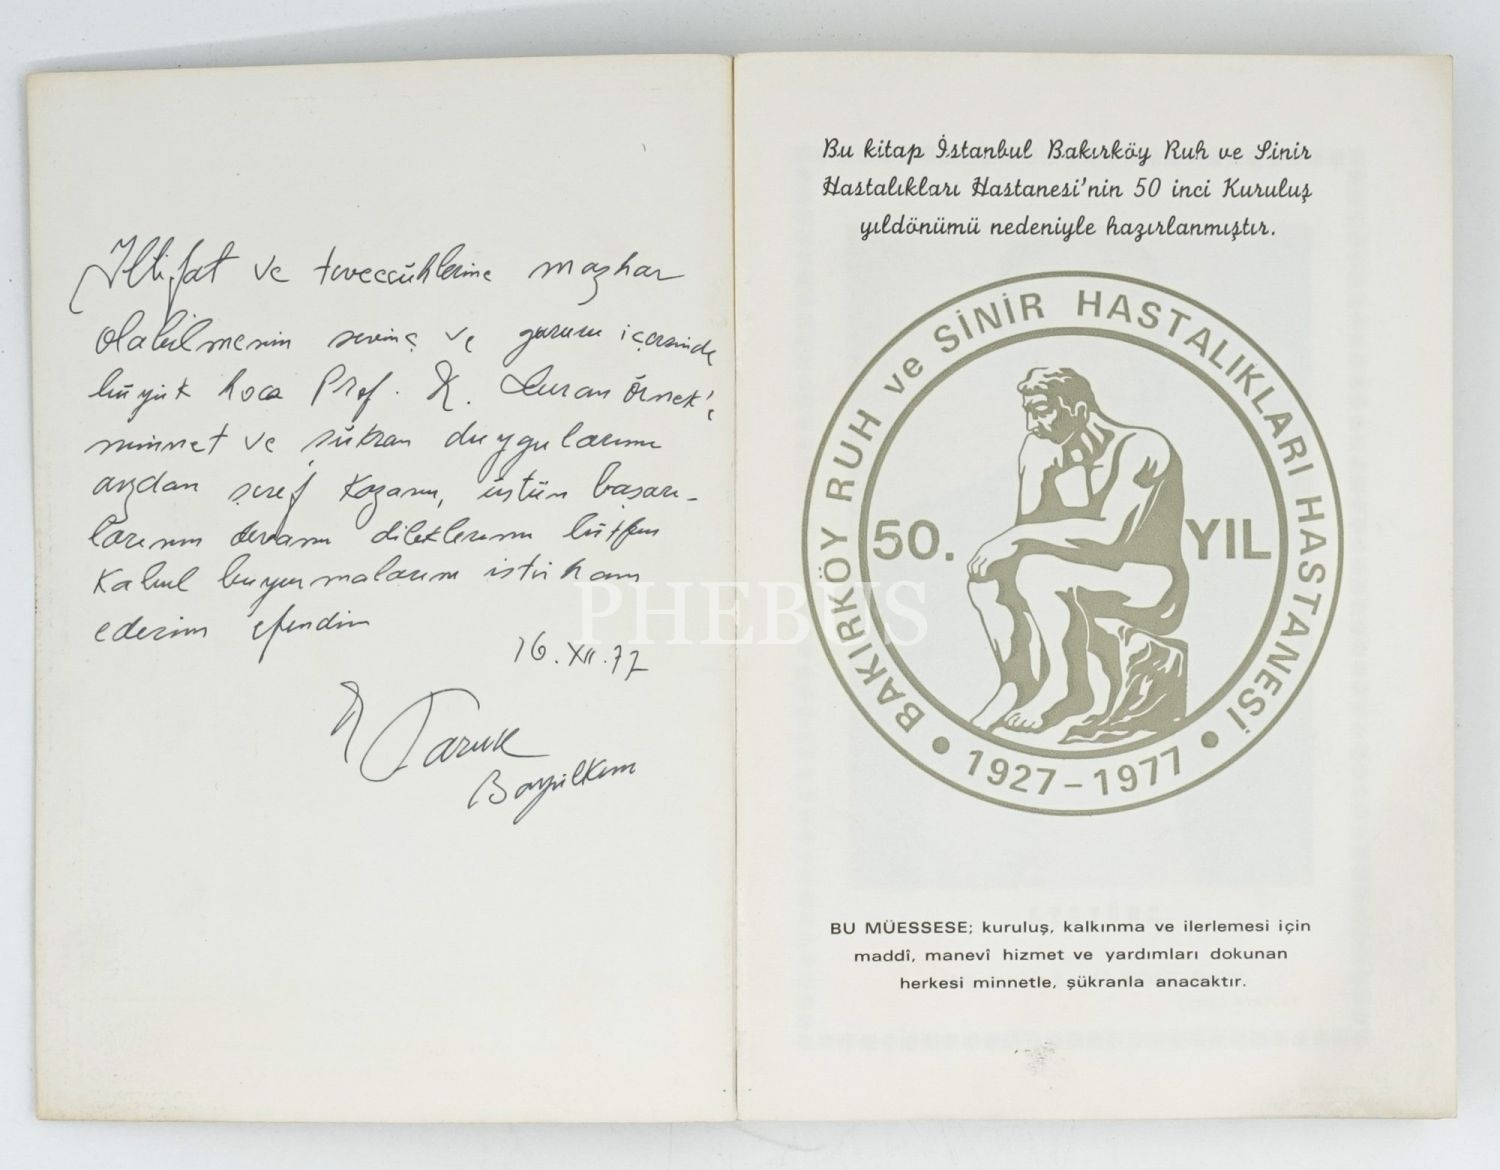 İltifat ve teveccühlerine mazhar
olabilmenin sevinç ve gururu içersinde
büyük hoca Prof. K. Turan Örnek'e
minnet ve şükran duygularımı
arzdan şeref kazanır, üstün başarı-
larının devamı dileklerimi lütfen
kabul buyurmalarını istirham
ederim efendim
16.XII.77
Faruk
Bayülkem
Bu kitap İstanbul Bakırköy Ruh ve Sinir
Hastalıkları Hastanesi'nin 50 inci Kuruluş
yıldönümü nedeniyle hazırlanmıştır.
BAKIRKÖY RUH ve SİNİR HASTALIKLARI HASTANESİ
50. YIL
• 1927-1977 •
BU MÜESSESE; kuruluş, kalkınma ve ilerlemesi için
maddî, manevî hizmet ve yardımları dokunan
herkesi minnetle, şükranla anacaktır.
PHEBUS